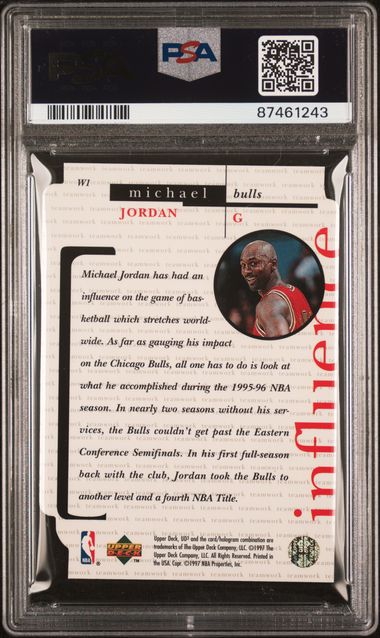 PSA
87461243
W1
michael
bulls
JORDAN
G
influence
Michael Jordan has had an
influence on the game of bas-
ketball which stretches world-
wide. As far as gauging his impact
on the Chicago Bulls, all one has to do is look at
what he accomplished during the 1995-96 NBA
season. In nearly two seasons without his ser-
vices, the Bulls couldn't get past the Eastern
Conference Semifinals. In his first full-season
back with the club, Jordan took the Bulls to
another level and a fourth NBA Title.
NBA
®
UPPER
DECK
TM
Upper Deck, UD³ and the card/hologram combination are
trademarks of The Upper Deck Company, LLC. ©1997 The
Upper Deck Company, LLC. All Rights Reserved. Printed in
the USA. Copr. ©1997 NBA Properties, Inc.
teamwork